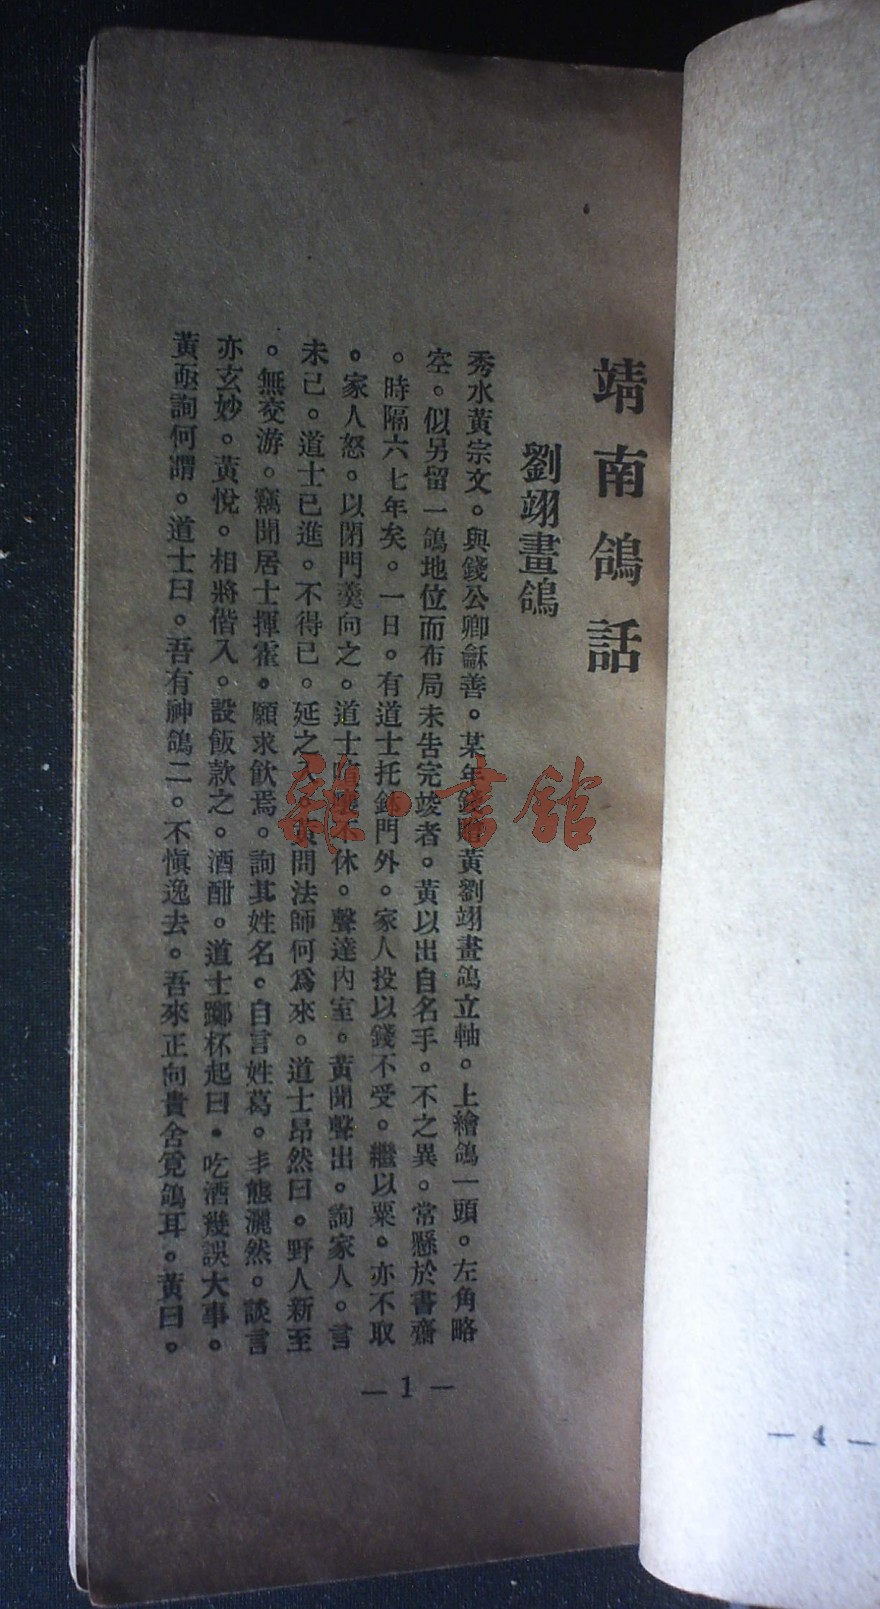 靖南鴿話
劉翊畫鴿
秀水黃宗文。與錢公卿龢善。某年錢贈黃劉翊畫鴿立軸。上繪鴿一頭。左角略
空。似另留一鴿地位而布局未告完竣者。黃以出自名手。不之異。常懸於書齋
。時隔六七年矣。一日。有道士托鉢門外。家人投以錢不受。繼以粟。亦不取
。家人怒。以閉門羹向之。道士喧嚷不休。聲達內室。黃聞聲出。詢家人。言
未已。道士已進。不得已。延之入。黃問法師何爲來。道士昂然曰。野人新至
。無交游。竊聞居士揮霍。願求飲焉。詢其姓名。自言姓葛。丰態灑然。談言
亦玄妙。黃悅。相將偕入。設飯款之。酒酣。道士擲杯起曰。吃酒幾誤大事。
黃亟詢何謂。道士曰。吾有神鴿二。不愼逸去。吾來正向貴舍覓鴿耳。黃曰。
— 1 —
— 4 —
雜·書館